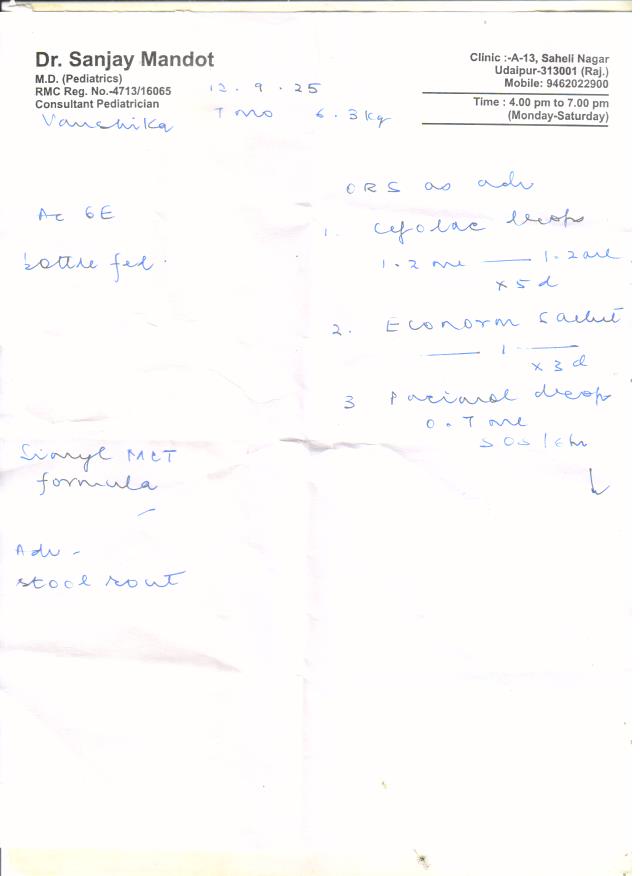 Dr. Sanjay Mandot
M.D. (Pediatrics)
RMC Reg. No.-4713/16065
Consultant Pediatrician
Clinic :-A-13, Saheli Nagar
Udaipur-313001 (Raj.)
Mobile: 9462022900
Time : 4.00 pm to 7.00 pm
(Monday-Saturday)
12.9.25
Vanshika
7 mo 6.3 kg
Ac GE
bottle fed.
formula
Adv -
stool rout
ORS as adv
1. Cefolac drops
1.2 ml — 1.2 ml
x 5 d
2. Econorm Sachet
— 1 —
x 3 d
3 Pacimol drops
0.7 ml
SOS / 6 hr
MCT